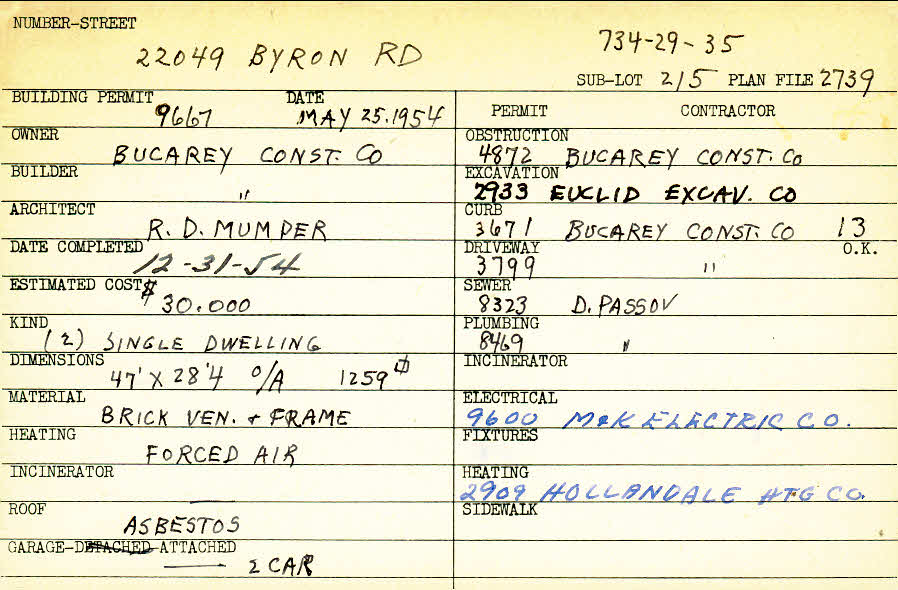 NUMBER-STREET
22049 BYRON RD
734-29-35
SUB-LOT 215 PLAN FILE 2739
BUILDING PERMIT DATE
9667 MAY 25.1954
OWNER
BUCAREY CONST. CO
BUILDER
"
ARCHITECT
R. D. MUMPER
DATE COMPLETED
12-31-54
ESTIMATED COST
$ 30.000
KIND
(2) SINGLE DWELLING
DIMENSIONS
47' X 28'4 O/A 1259
MATERIAL
BRICK VEN. + FRAME
HEATING
FORCED AIR
INCINERATOR
ROOF
ASBESTOS
GARAGE-DETACHED-ATTACHED
2 CAR
PERMIT CONTRACTOR
OBSTRUCTION
4872 BUCAREY CONST. Co
EXCAVATION
2933 EUCLID EXCAV. CO
CURB
3671 BUCAREY CONST. CO 13
DRIVEWAY O.K.
3799 "
SEWER
8323 D. PASSOV
PLUMBING
8469 "
INCINERATOR
ELECTRICAL
9600 M&K ELECTRIC CO.
FIXTURES
HEATING
2909 HOLLANDALE HTG CO.
SIDEWALK